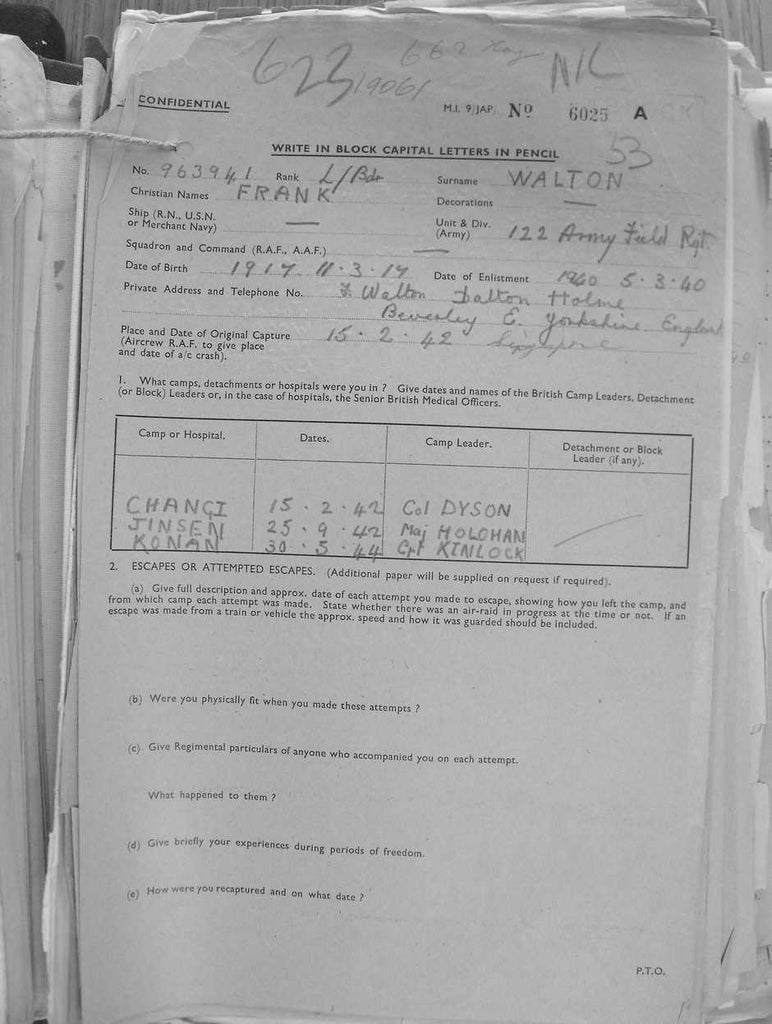 623 19061 662 NIL
CONFIDENTIAL M.I. 9/JAP/ No 6025 A
WRITE IN BLOCK CAPITAL LETTERS IN PENCIL 53
No. 963941 Rank L/Bdr Surname WALTON
Christian Names FRANK Decorations —
Ship (R.N., U.S.N. or Merchant Navy) — Unit & Div. (Army) 122 Army Field Rgt.
Squadron and Command (R.A.F., A.A.F.) —
Date of Birth 1917. 11.3.17 Date of Enlistment 1940 5.3.40
Private Address and Telephone No. F. Walton Dalton Holme
Beverley E. Yorkshire England
Place and Date of Original Capture 15.2.42 Singapore
(Aircrew R.A.F. to give place
and date of a/c crash).
1. What camps, detachments or hospitals were you in ? Give dates and names of the British Camp Leaders, Detachment
(or Block) Leaders or, in the case of hospitals, the Senior British Medical Officers.
Camp or Hospital. Dates. Camp Leader. Detachment or Block
Leader (if any).
CHANGI 15.2.42 Col DYSON
JINSEN 25.9.42 Maj HOLOHAN
KONAN 30.5.44 Cpt KINLOCK
2. ESCAPES OR ATTEMPTED ESCAPES. (Additional paper will be supplied on request if required).
(a) Give full description and approx. date of each attempt you made to escape, showing how you left the camp, and
from which camp each attempt was made. State whether there was an air-raid in progress at the time or not. If an
escape was made from a train or vehicle the approx. speed and how it was guarded should be included.
(b) Were you physically fit when you made these attempts ?
(c) Give Regimental particulars of anyone who accompanied you on each attempt.
What happened to them ?
(d) Give briefly your experiences during periods of freedom.
(e) How were you recaptured and on what date ?
P.T.O.